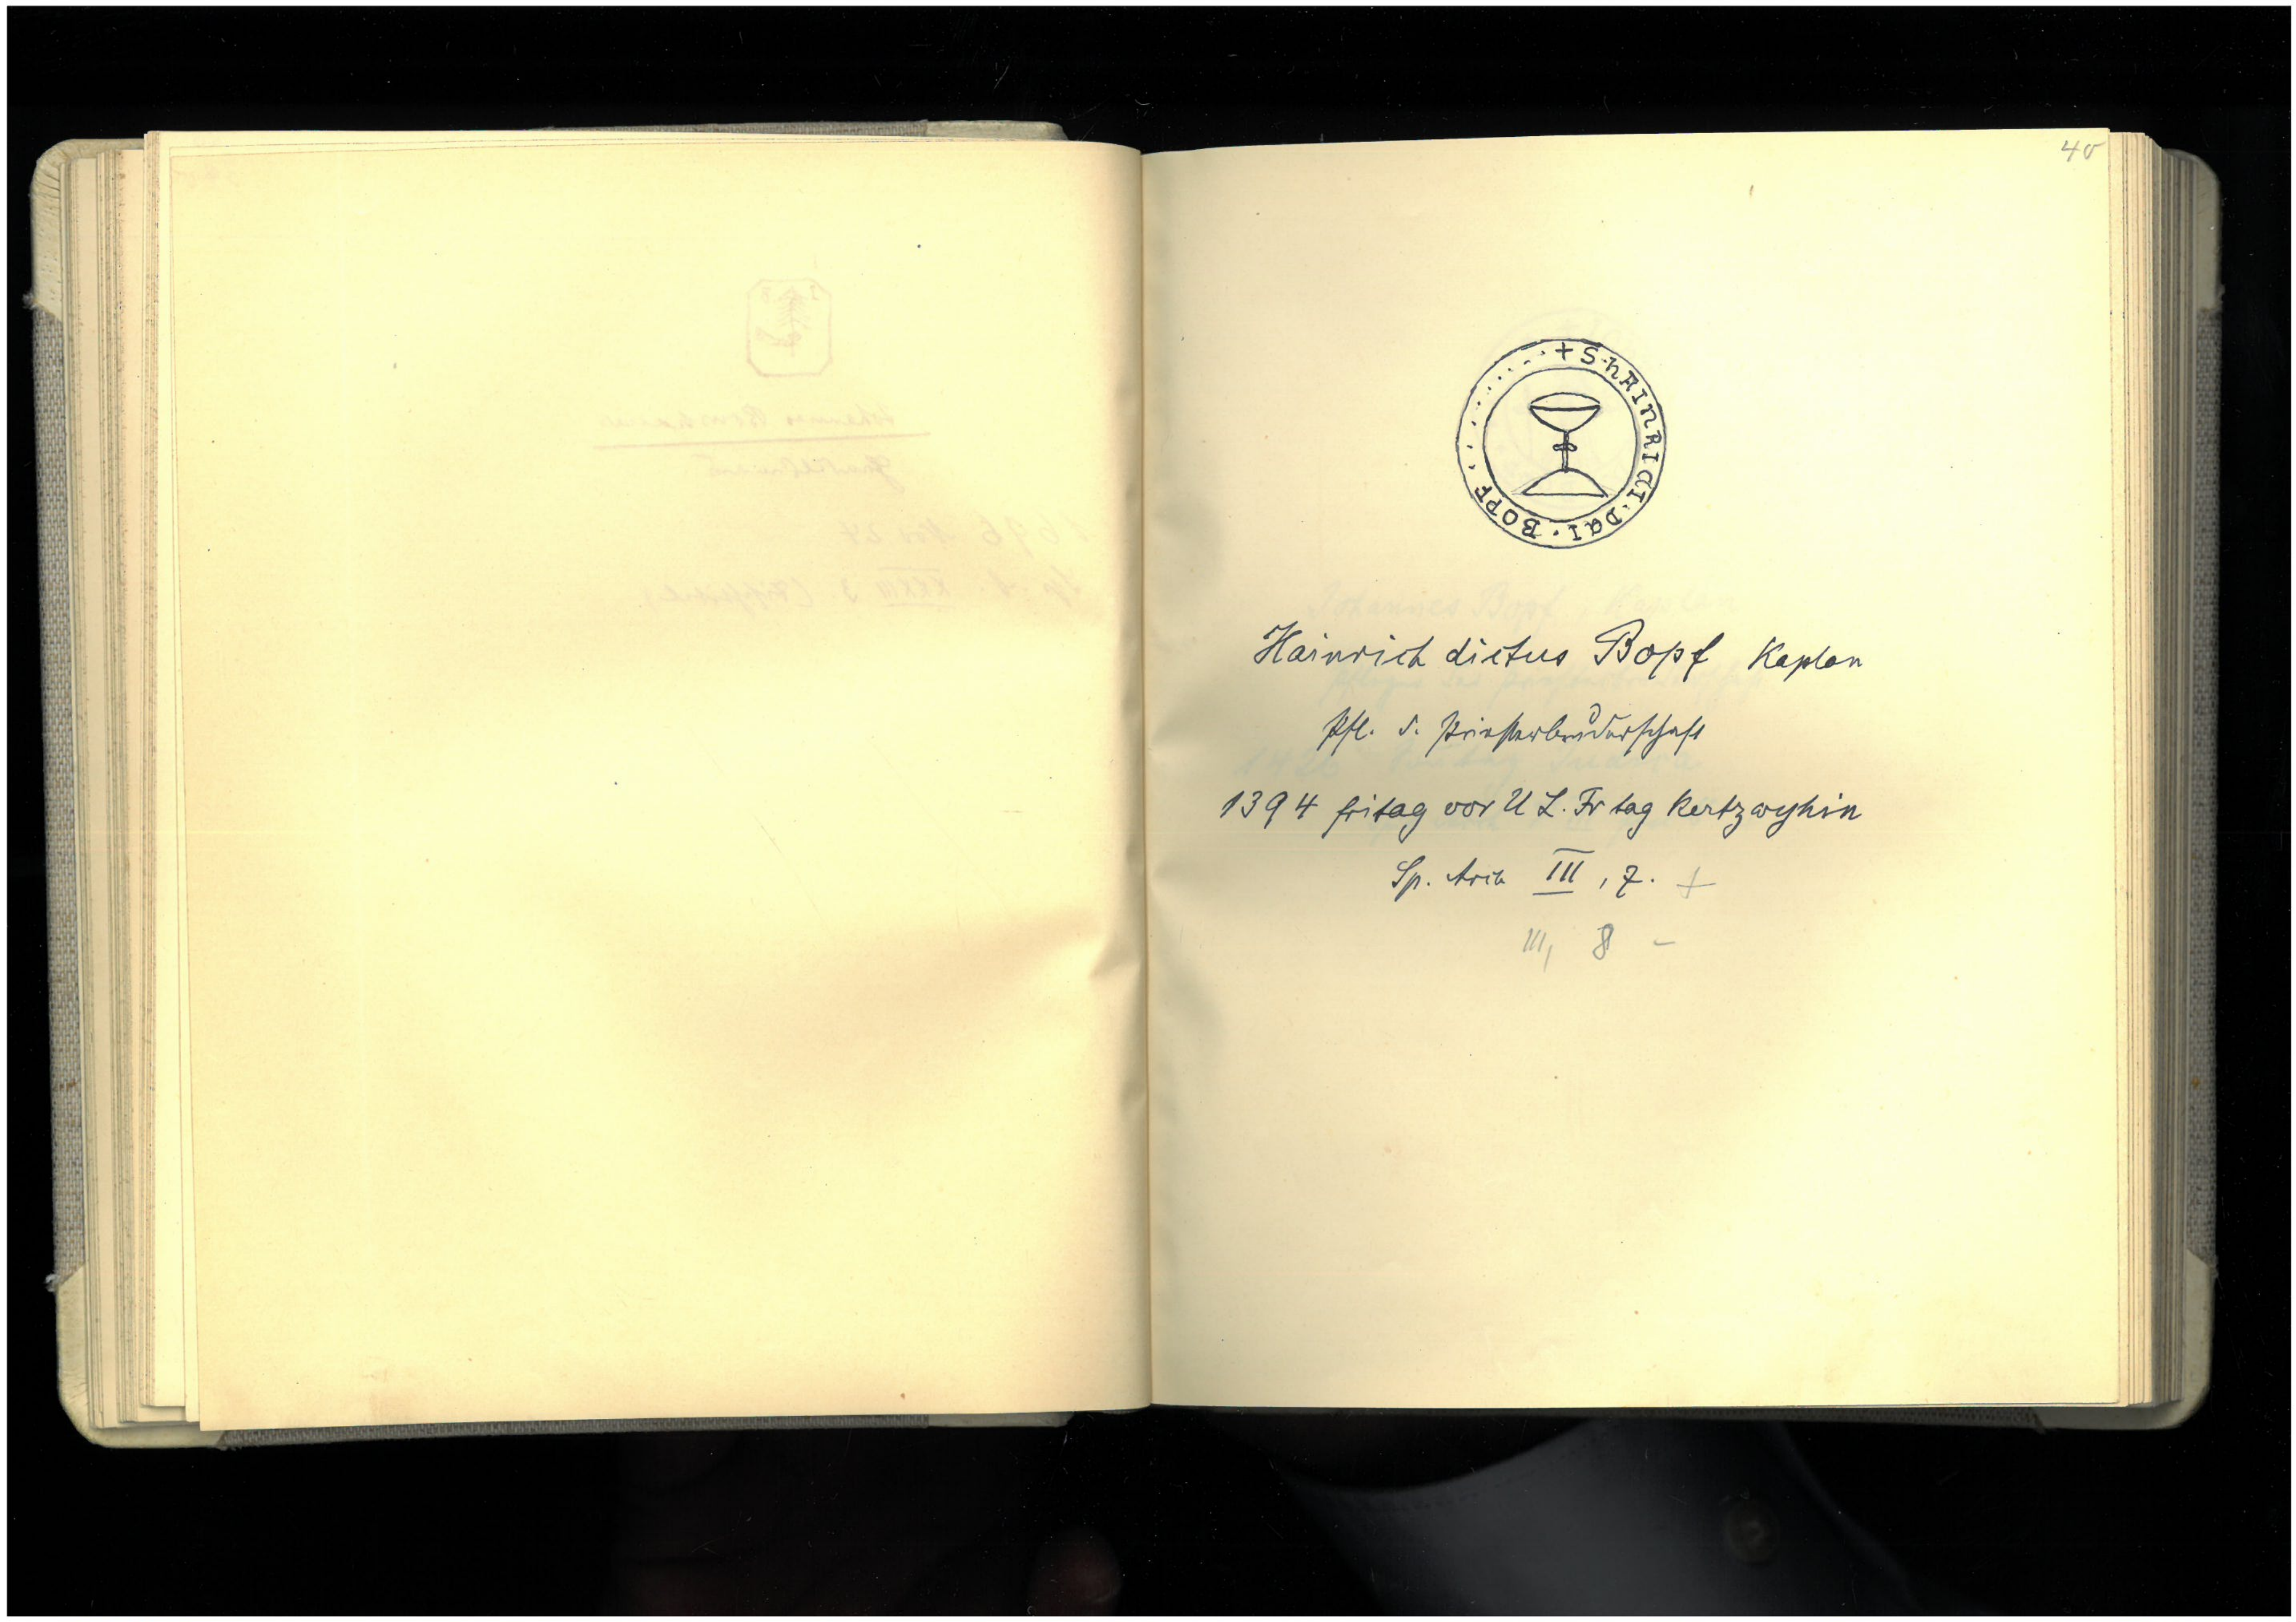 40
+ S · hAINRICI · DCI · BOPF · . . . . . . . .
Hainrich dictus Bopf Kaplan
Pfl. d. Priesterbruderschaft
1394 fritag vor U L. Fr tag Kertzwyhin
Sp. Arch III, 7. +
III, 8 –